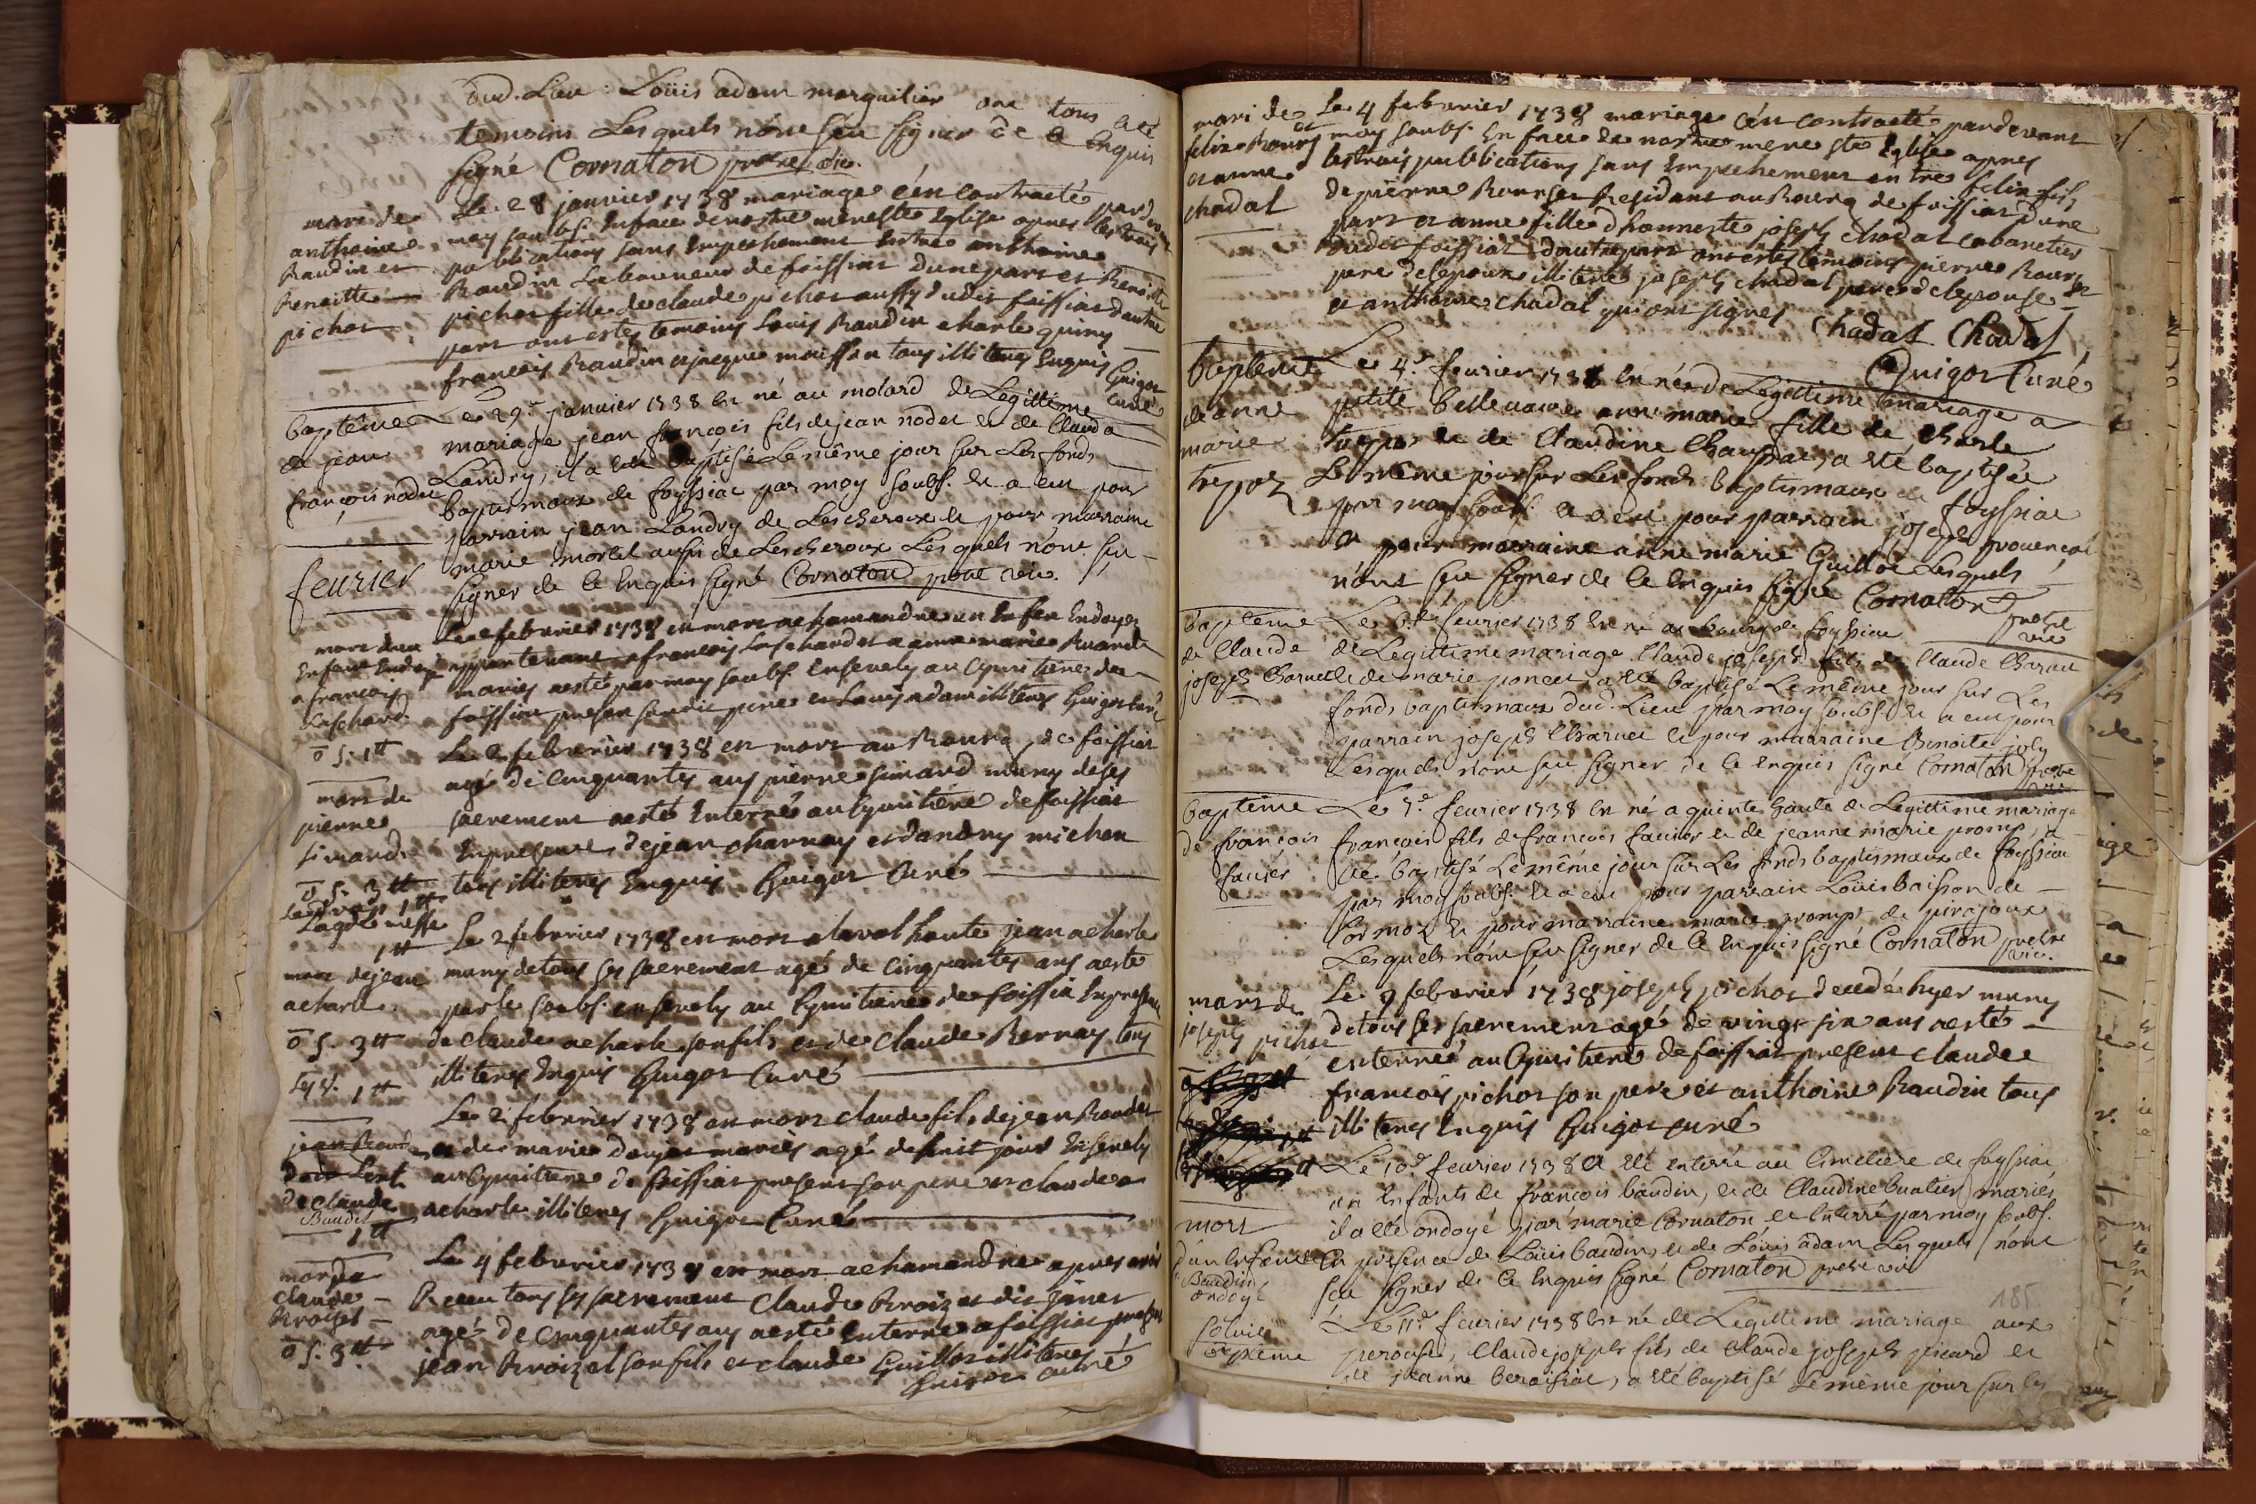 dud. Lieu. Loüis adam marguilier ont tous été
temoins Lesquels n'ont sçu signer de ce enquis
signé Cornaton pretre vic.
mari de
anthoine
Raudin et
Benoitte
pichot
Le 28 janvier 1738 mariage a éte contracté pardevant
moy soubs. en face de nostre mere ste Eglise apres les trois
publications sans empechement entre anthoine
Raudin laboureur de foissiat dune part et Benoitte
pichot fille de claude pichot aussy dudit foissiat dautre
part ont estes temoins Louis Raudin charle
francois Raudin et jacque tous illiteres enquis Guigot
curé
baptême
de jean
françois nodet
Le 29e janvier 1738 est né au molard de Legittime
mariage jean françois fils de jean nodet et de Clauda
Landry, il a été baptisé Le même jour sur Les fonds
baptismaux de foyssiat par moy soubs. et a eu pour
parrain jean Landry de Lescheroux et pour marraine
marie morel aussi de Lescheroux Lesquels n'ont sçu
signer de ce enquis signé Cornaton pretre vic.
feurier
mort dun
enfant endoyé
a francois
Laschard
o s. 1tt
Le 2 febvrier 1738 est mort a chamandre un enfan endoyé
appartenant a francois Laschard et a anne marie
mariés a esté par moy soubs. ensevely au cymitiere de
foissiat present sondit pere et Louis adam illiteres Guigot curé
mort de
pierre
simand
o s. 3tt
Le 2 febvrier 1738 est mort au Bourg de foissiat
agé de cinquantes ans pierre simand muny de ses
sacrement a esté enterré au cymitiere de foissiat
en presence de jean charnay et dandry michon
tous illiteres enquis Guigot Curé
1tt
mort de jean
acharle
o s. 3tt
1tt
Le 2 febvrier 1738 est mort a laval haute jean acharle
muny de tous ses sacrement agé de cinquantes ans a esté
par le soubs. ensevely au Cymitiere de foissia en presence
de claude acharle son fils et de claude Bernay tous
illiteres enquis Guigot Curé
de claude
Baudet
1tt
Le 2 febvrier 1738 est mort claude fils de jean Baudet
et de marie mariés agé de huit jour ensevely
au Cymitiere de foissiat present son pere et claude
acharle illiteres Guigot Curé
mort de
claude
Broizat
o s. 3tt
Le 4 febvrier 1738 est mort a chamandre apres avoir
Receu tous ses sacrement Claude Broizat dit
agé de cinquantes ans a esté enterré a foissiat present
jean Broizat son fils et claude Guillot illiteres
Guigot curé
mari de
felix Rour
et anne
chadal
Le 4 febvrier 1738 mariage a éte contracté pardevant
moy soubs. en face de nostre mere ste Eglise apres
les trois publications sans empechement entre felix fils
de pierre Rour Residant au Bourg de foissiat dune
part et anne fille dhonneste joseph chadal cabaretier
dudit foissiat dautre part ont estes temoins pierre Rour
pere de lepoux illiteré joseph chadal pere de lepouse
et anthoine chadal qui ont signés Chadal Chadal
Guigot Curé
baptême
de anne
marie
trepoz
Le 4e feurier 1738 est née de Legittime mariage a
petite bellevavre anne marie fille de Charle
trepoz et de Claudine a été baptisée
Le même jour sur Les fonds baptismaux de foyssiat
par moy soubs. et a eu pour parrain joseph prouençal
et pour marraine anne marie Guillot Lesquels
n'ont sçu signer de ce enquis signé Cornaton pretre
vic
baptême
de Claude
joseph Charvet
Le 6e feurier 1738 est né au bourg de foyssiat
de Legittime mariage Claude joseph fils de Claude Charvet
et de marie poncet, a été baptisé Le même jour sur Les
fonds baptismaux dud. Lieu par moy soubs. et a eu pour
parrain joseph Charvet et pour marraine Benoite joly
Lesquels n'ont sçu signer de ce enquis signé Cornaton pretre
vic.
baptême
de françois
faurier
Le 7e feurier 1738 est né a quinte haute de Legittime mariage
françois fils de françois faurier et de jeanne marie promp, a
été baptisé Le même jour sur Les fonds baptismaux de foyssiat
par moy soubs. et a eu pour parrain Loüis baisson de
Cormoz et pour marraine marie promp de pirajoux
Lesquels n'ont sçu signer de ce enquis signé Cornaton pretre
vic.
mort de
joseph pichot
Le 9 febvrier 1738 joseph pichot decedé hyer muny
de tous ses sacrement agé de vingt six ans a esté
enterré au Cymitiere de foissiat present claude
francois pichot son pere et anthoine Raudin tous
illiteres enquis Guigot curé
mort
d'un enfant
Baudin
ondoyé
Le 10e feurier 1738 a été enterré au Cimetiere de foyssiat
un enfant de françois baudin, et de Claudine buatier mariés
il a été ondoyé par marie Cornaton et enterré par moy soubs.
en presence de Loüis baudin, et de Loüis adam Lesquels n'ont
sçu signer de ce enquis signé Cornaton pretre vic
185
Le 11e feurier 1738 est né de Legittime mariage aux
perouses, Claude joseph fils de Claude joseph picard et
de jeanne, a été baptisé Le même jour sur les